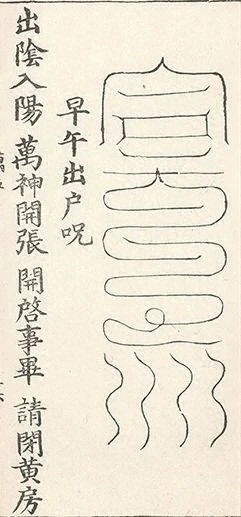 早午出户呪
出陰入陽 萬神開張 開啓事畢 請閉黄房